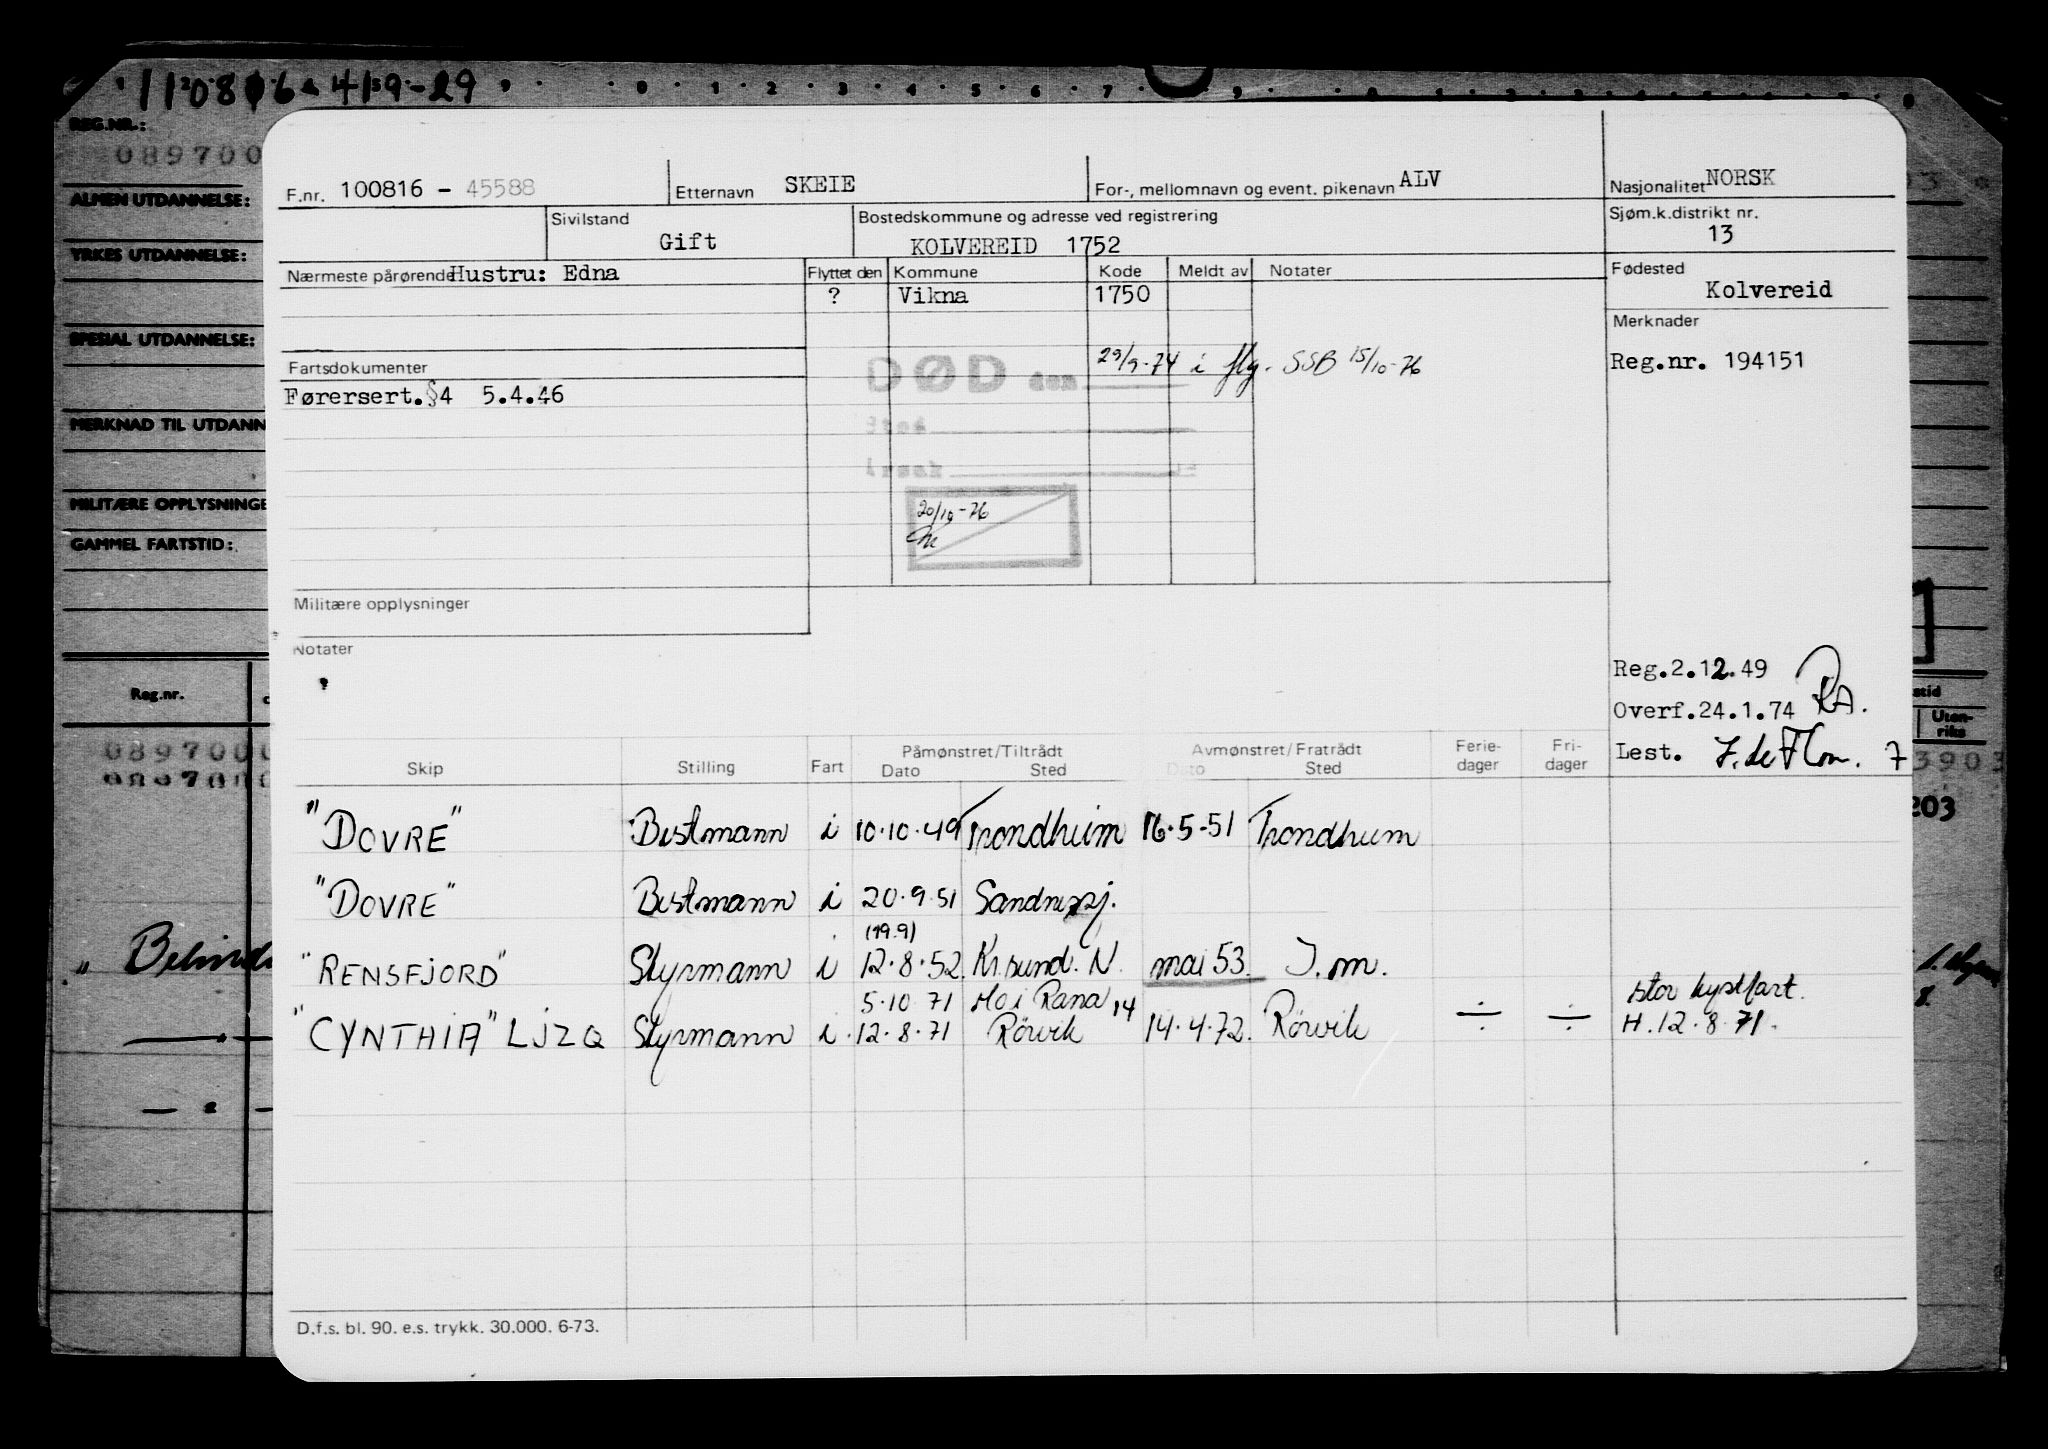 110816-4159-29
REG.NR.:
089700
ALMEN UTDANNELSE:
YRKES UTDANNELSE:
SPESIAL UTDANNELSE:
MERKNAD TIL UTDANN
MILITÆRE OPPLYSNINGE
GAMMEL FARTSTID:
Reg.nr.
089700
F.nr. 100816 - 45588
Etternavn SKEIE
For-, mellomnavn og event. pikenavn ALV
Nasjonalitet NORSK
Sivilstand
Gift
Bostedskommune og adresse ved registrering
KOLVEREID 1752
Sjøm.k.distrikt nr.
13
Nærmeste pårørende Hustru: Edna
Flyttet den Kommune Kode Meldt av Notater
? Vikna 1750
Fødested
Kolvereid
Merknader
Reg.nr. 194151
Fartsdokumenter
Førersert.§4 5.4.46
DØD den 29/9-74 i flg. SSB 15/10-76
Sted
Årsak
20/10-76
Militære opplysninger
Notater
Reg.2.12.49
Overf.24.1.74 RA.
Lest. 7
Skip Stilling Fart Påmønstret/Tiltrådt Dato Sted Avmønstret/Fratrådt Dato Sted Ferie-dager Fri-dager
"DOVRE" Bestmann i 10.10.49 Trondheim 16.5-51 Trondheim
"DOVRE" Bestmann i 20.9.51 Sandnessj.
(19.9)
"RENSFJORD" Styrmann i 12.8.52 Kr.sund. N. mai 53. I.m.
5.10 71 Mo i Rana 14
"CYNTHIA" LJZQ Styrmann i 12.8.71 Rörvik 14.4.72. Rörvik ÷ ÷
stor kystfart.
H.12.8.71.
D.f.s. bl. 90. e.s. trykk. 30.000. 6-73.
Uten-
riks
3903
203